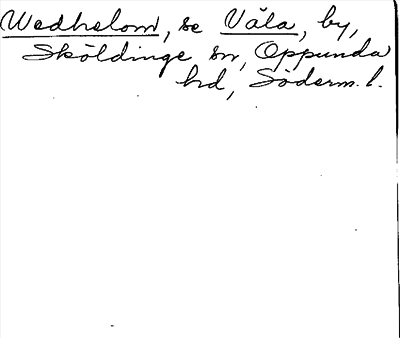 Wedhelom, se Våla, by,
Sköldinge sn, Oppunda
hd, Söderm. l.